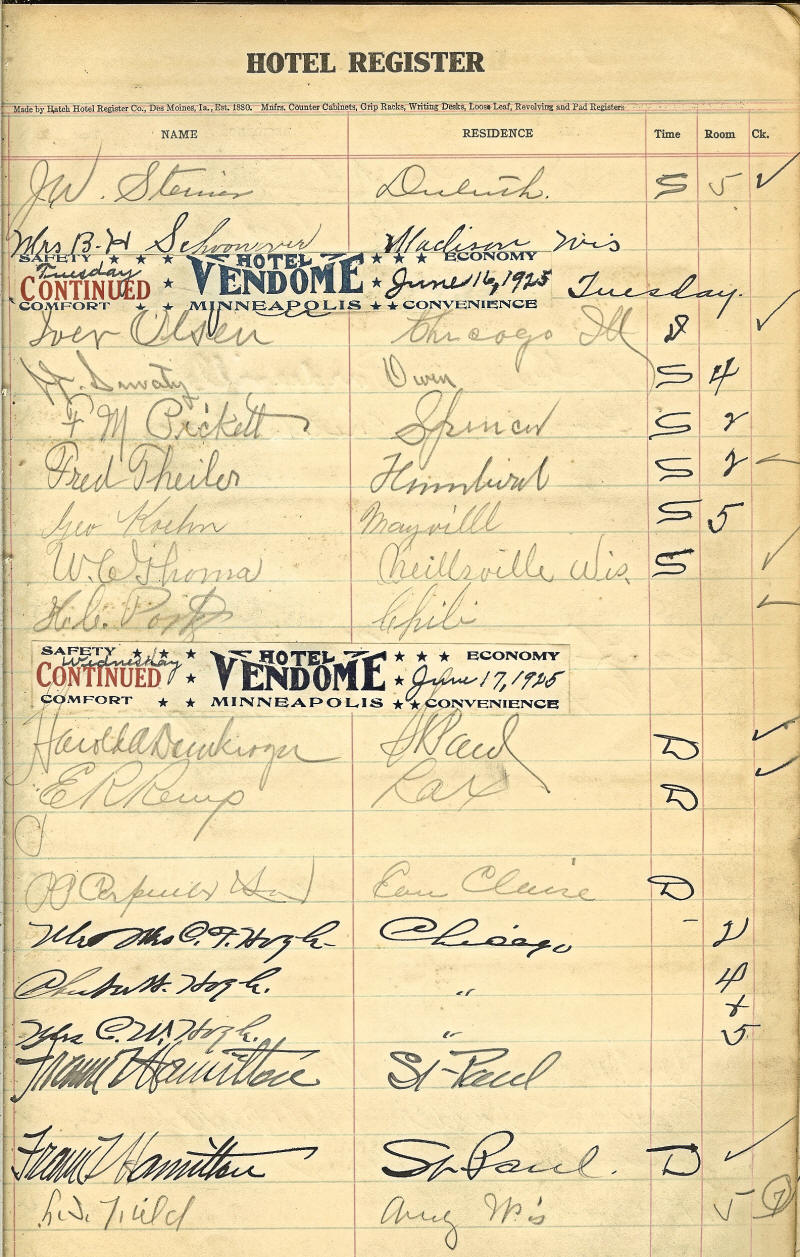 HOTEL REGISTER
Made by Hatch Hotel Register Co., Des Moines, Ia., Est. 1880. Mnfrs. Counter Cabinets, Grip Racks, Writing Desks, Loose Leaf, Revolving and Pad Registers
NAME RESIDENCE Time Room Ck.
J.W. Steiner Duluth. S 5 ✓
Mrs B. H Schoonover Madison Wis
SAFETY ★ ★ ★ HOTEL ★ ★ ★ ECONOMY
Tuesday
CONTINUED ★ VENDOME ★ June 16, 1925 Tuesday.
COMFORT ★ ★ MINNEAPOLIS ★ ★ CONVENIENCE
Iver Olsen Chicago Ill ✓
Owen S 4
F M Pickett Spencer S 2
Fred Theiler Humbird S 2
Geo Koehn Mayville S 5
W. C Thoma Neillsville Wis. S ✓
H.C. Chili
SAFETY ★ ★ HOTEL ★ ★ ★ ECONOMY
Wednesday
CONTINUED ★ VENDOME ★ June 17, 1925
COMFORT ★ ★ MINNEAPOLIS ★ ★ CONVENIENCE
Harold A St Paul D ✓
E R Kemp Lax D ✓
Eau Claire D
Mr & Mrs C. F. Hogh Chicago 2
Hogh. " 4
+
Mrs C. W. Hogh. " 5
Frank Hamilton St-Paul
Frank Hamilton St. Paul. D ✓
Field Aug Wis 5 7